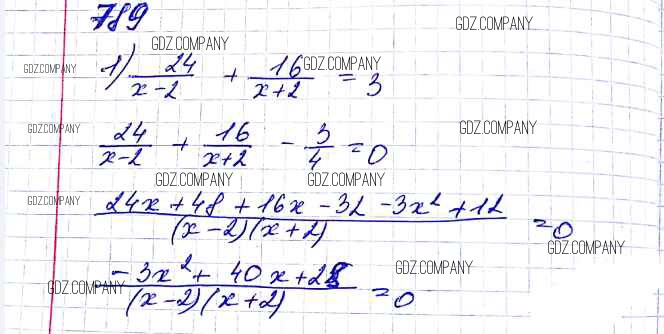 789
GDZ.COMPANY
GDZ.COMPANY
GDZ.COMPANY GDZ.COMPANY
1) 24/(x-2) + 16/(x+2) = 3
GDZ.COMPANY GDZ.COMPANY
24/(x-2) + 16/(x+2) - 3/4 = 0
GDZ.COMPANY GDZ.COMPANY
GDZ.COMPANY
(24x + 48 + 16x - 32 - 3x² + 12)/((x-2)(x+2)) = 0
GDZ.COMPANY
GDZ.COMPANY
(-3x² + 40x + 28)/((x-2)(x+2)) = 0
GDZ.COMPANY